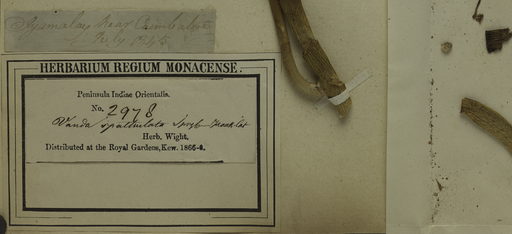 near
July 1845.
HERBARIUM REGIUM MONACENSE.
Peninsula Indiae Orientalis.
No. 2978
Vanda spathulata Spreng
Herb. Wight.
Distributed at the Royal Gardens, Kew. 1866-4.